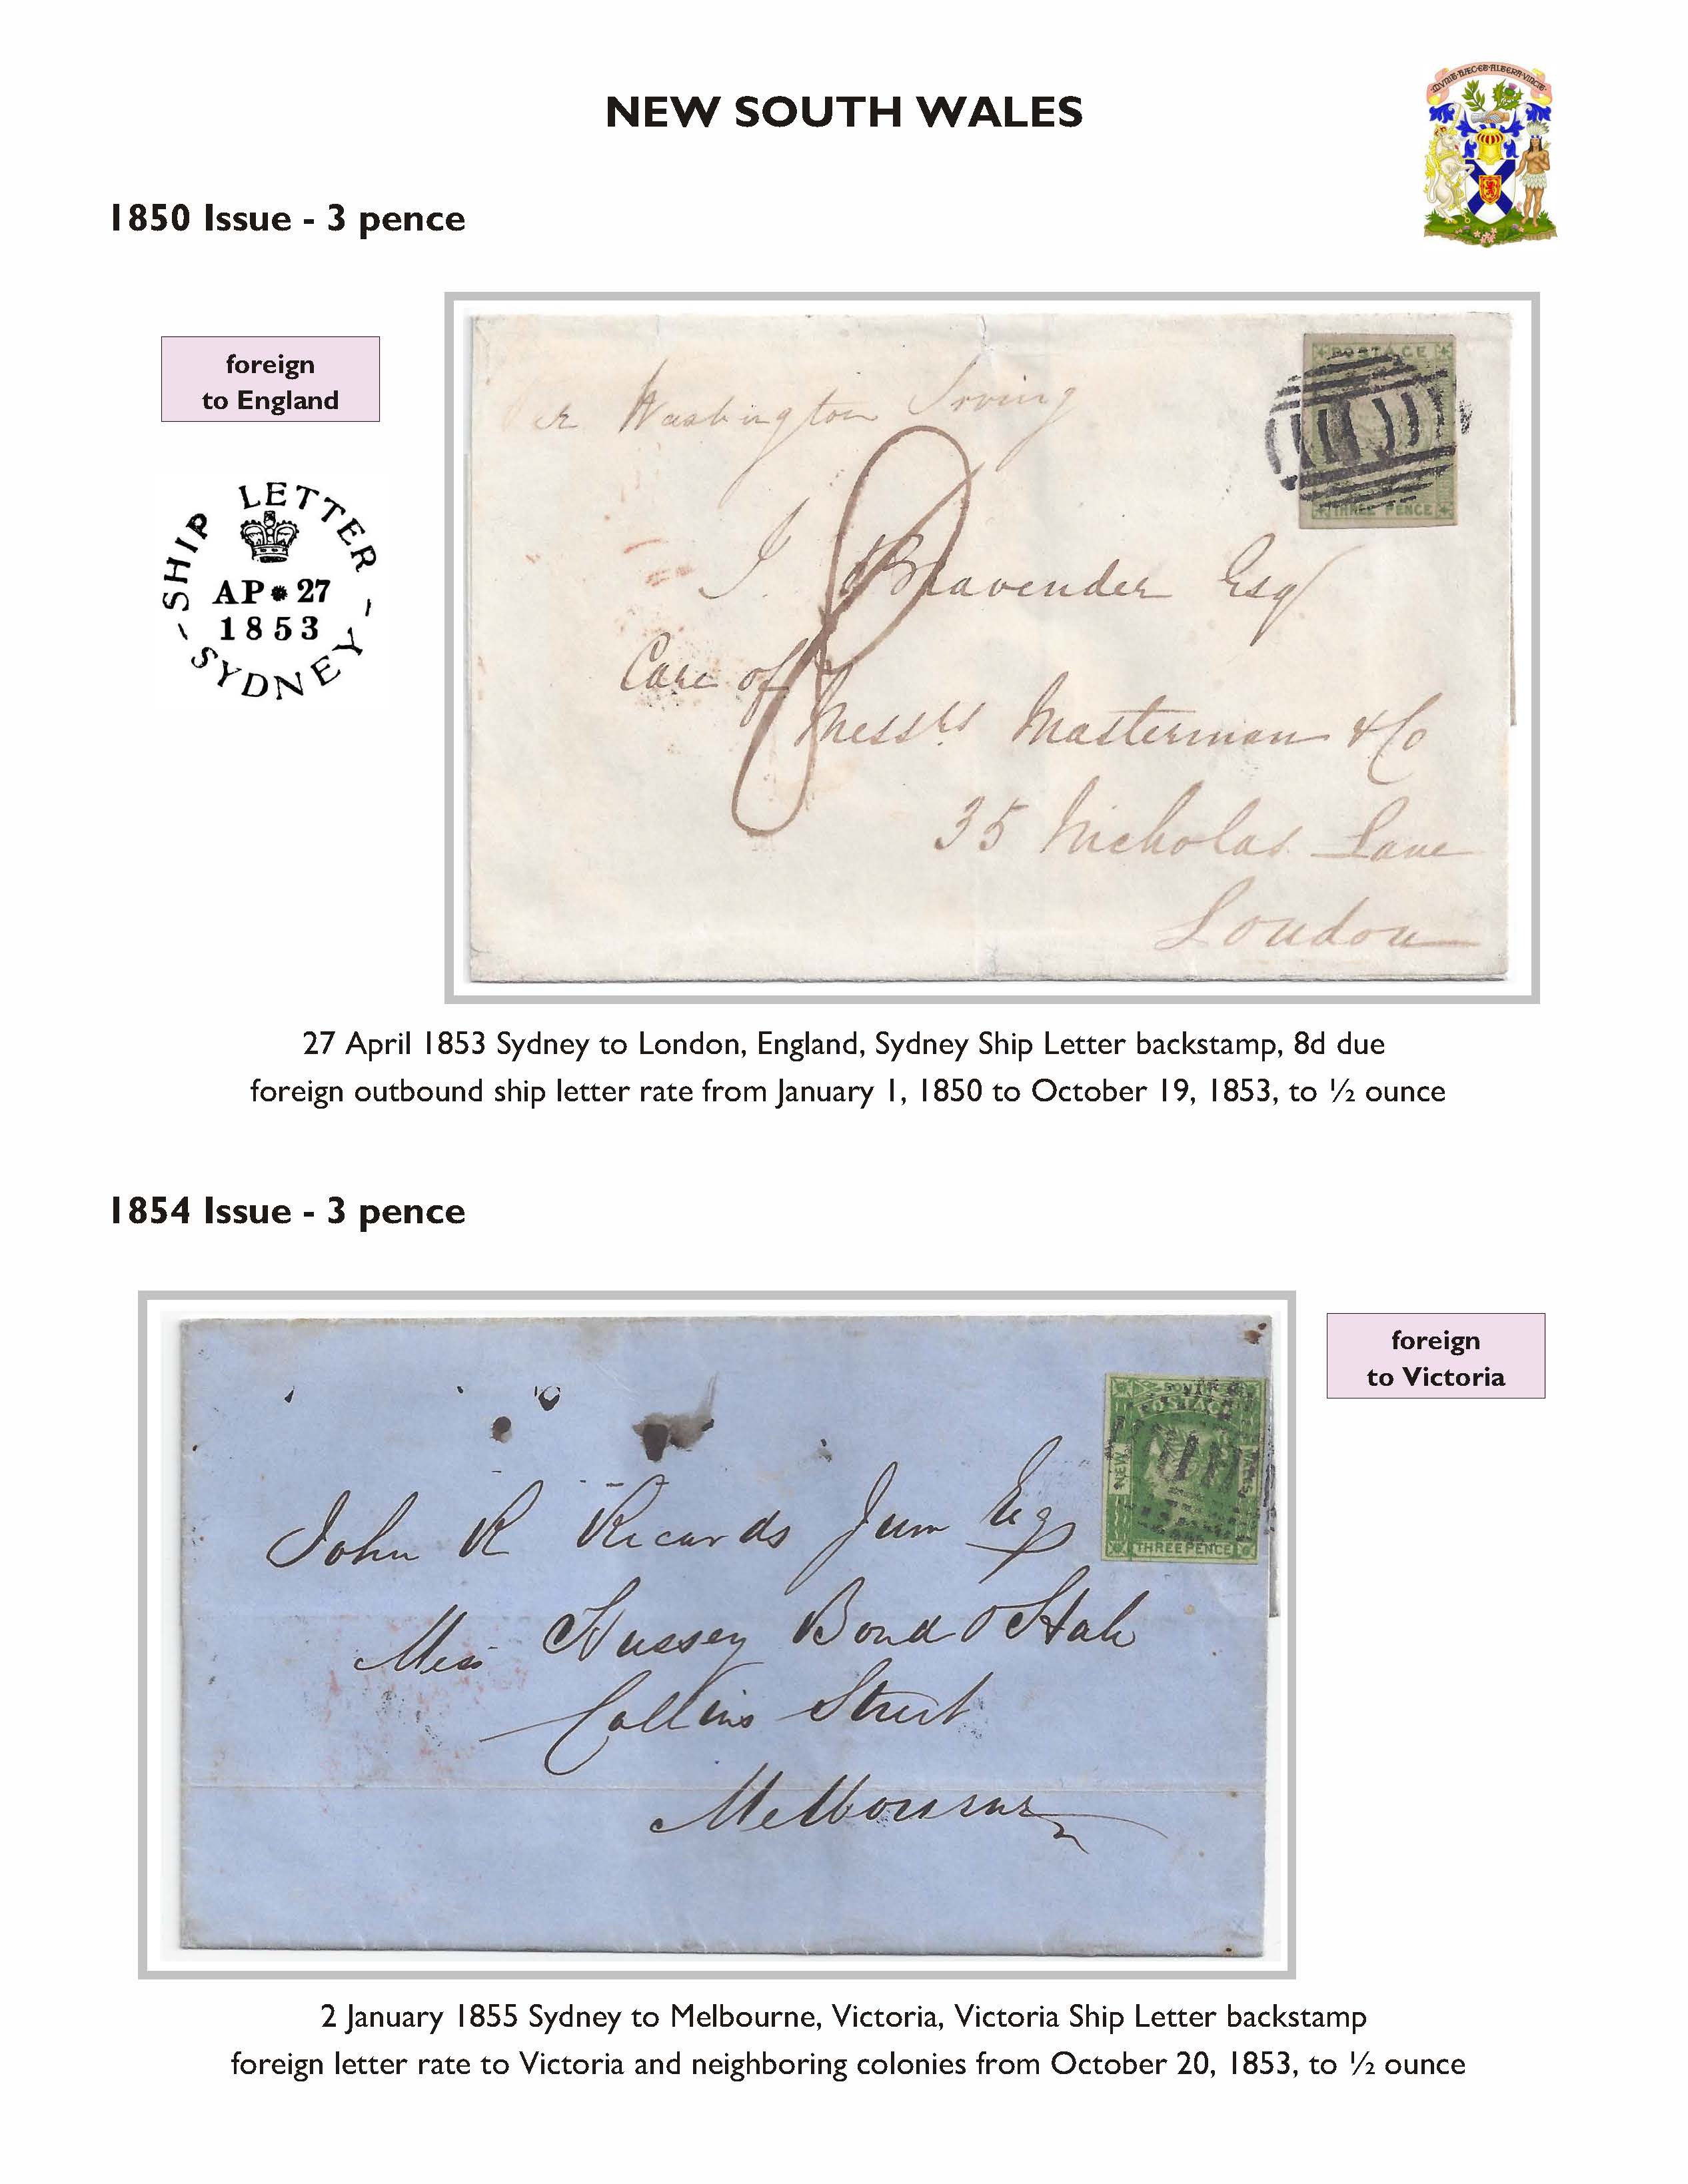 NEW SOUTH WALES
MUNIT HÆC ET ALTERA VINCIT
1850 Issue - 3 pence
foreign
to England
SHIP LETTER
AP 27
1853
SYDNEY
Per Washington Irving
POSTAGE
THREE PENCE
8
J. Bravender Esq
Care of
Messrs Masterman & Co
35 Nicholas Lane
London
27 April 1853 Sydney to London, England, Sydney Ship Letter backstamp, 8d due
foreign outbound ship letter rate from January 1, 1850 to October 19, 1853, to ½ ounce
1854 Issue - 3 pence
foreign
to Victoria
SOUTH
POSTAGE
NEW
WALES
THREE PENCE
John R Ricards Junr Esq
Hussey Bond &
Collins Street
Melbourne
2 January 1855 Sydney to Melbourne, Victoria, Victoria Ship Letter backstamp
foreign letter rate to Victoria and neighboring colonies from October 20, 1853, to ½ ounce